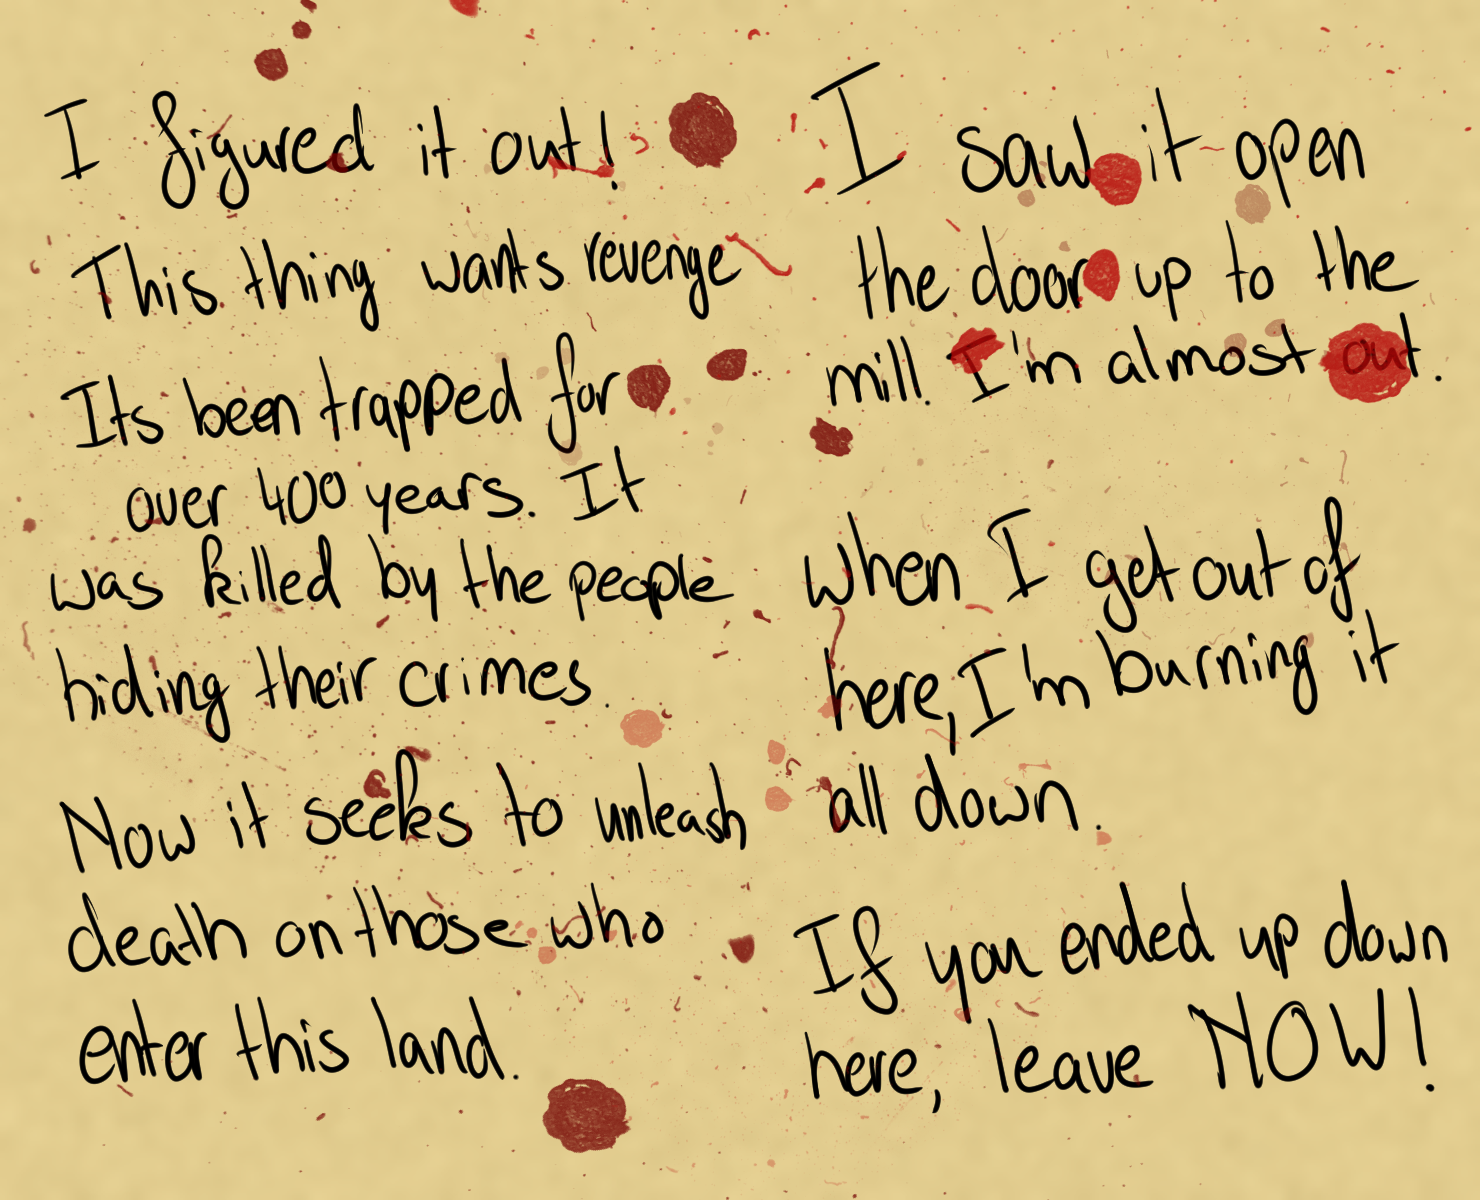 I figured it out!
This thing wants revenge
Its been trapped for
over 400 years. It
was killed by the people
hiding their crimes.
Now it seeks to unleash
death on those who
enter this land.
I saw it open
the door up to the
mill. I'm almost out.
when I get out of
here, I'm burning it
all down.
If you ended up down
here, leave NOW!